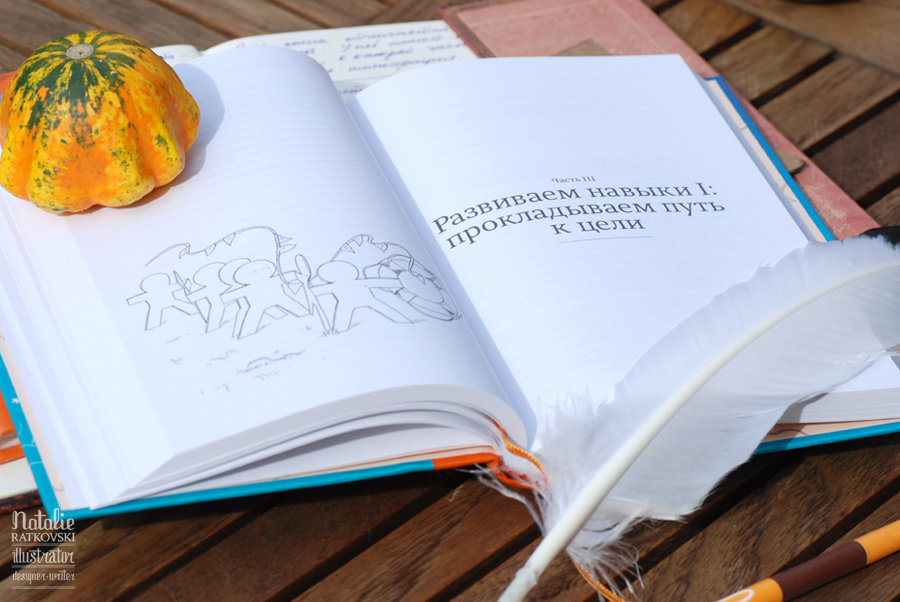 к каждой
Часть III
Развиваем навыки I:
прокладываем путь
к цели
Natalie
RATKOVSKI
illustrator
designer-writer